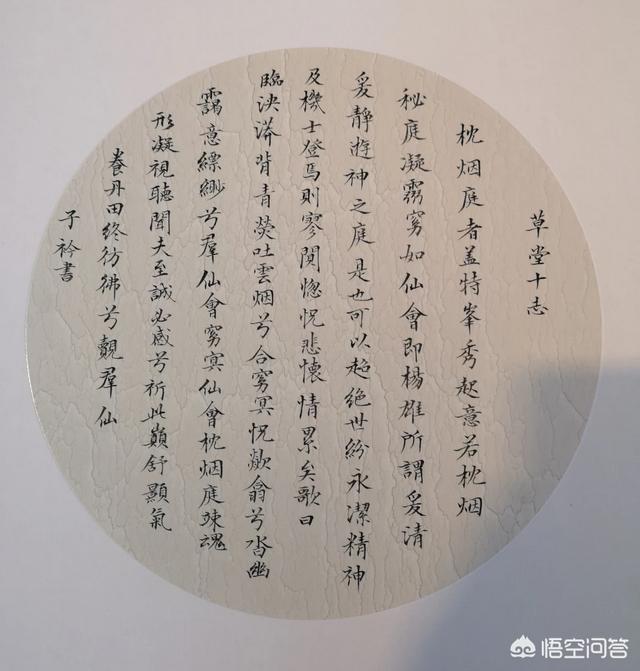 草堂十志
枕烟庭者盖特峯秀起意若枕烟
秘庭凝霧窅如仙會即楊雄所謂爰清
爰静遊神之庭是也可以超绝世紛永潔精神
及機士登焉則寥闃惚怳悲懷情累矣歌曰
臨泱漭背青熒吐雲烟兮合窅冥怳歘翕兮沓幽
靄意縹緲兮羣仙會窅冥仙會枕烟庭竦魂
形凝視聽聞夫至誠必感兮祈此巔舒顥氣
養丹田終彷彿兮覿羣仙
子衿書
悟空问答